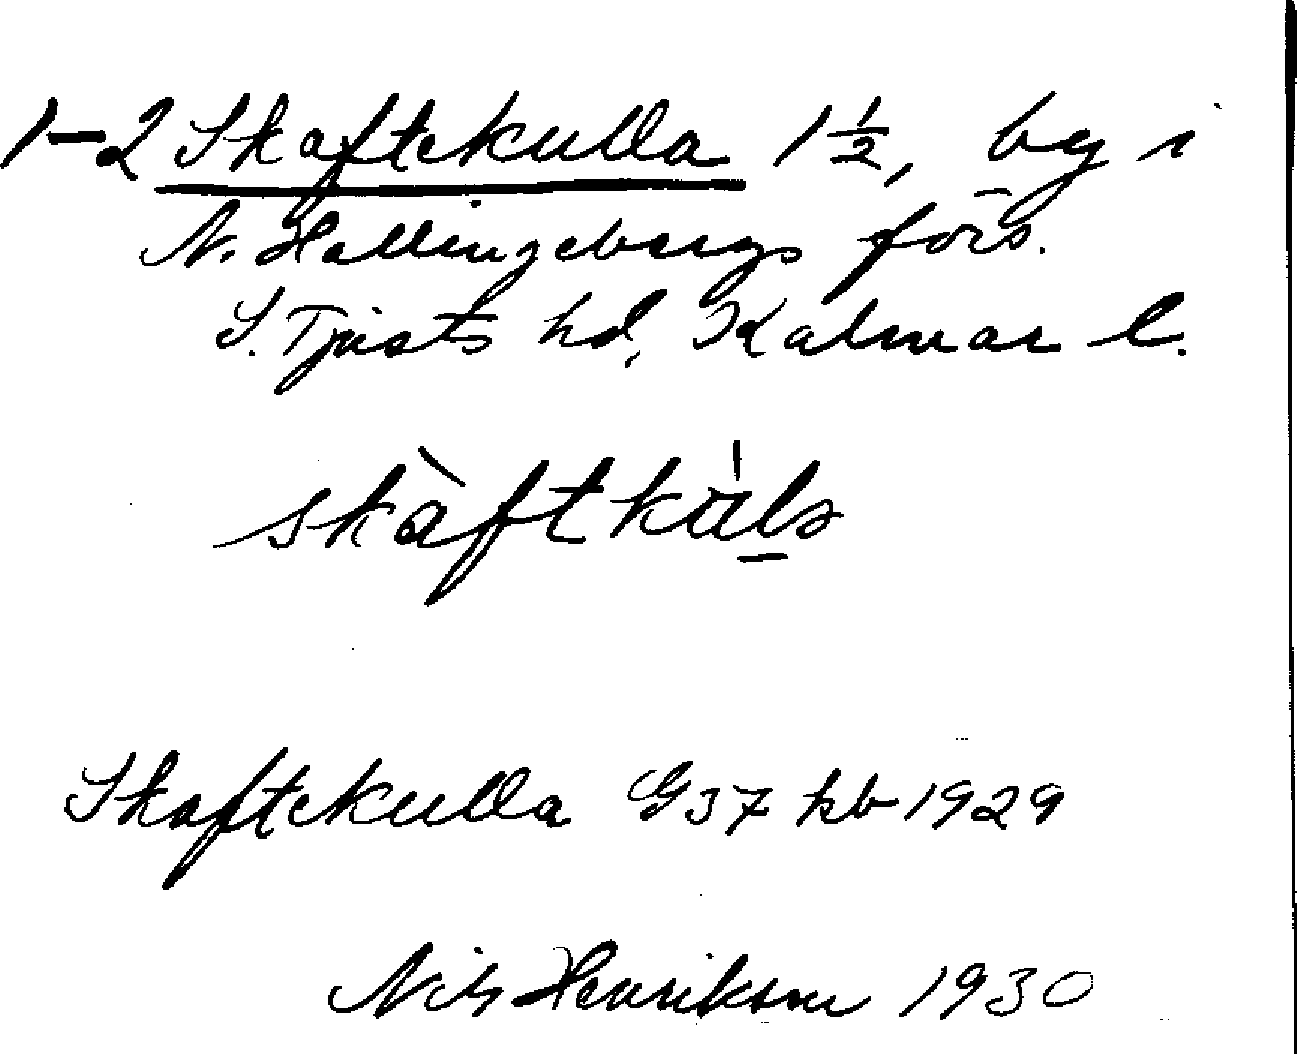 1-2 Skaftekulla 1½, by i
N. Hallingebergs förs.
S. Tjusts hd, Kalmar l.
skàftkùlɒ
Skaftekulla G37 kb 1929
Nils Henrikson 1930